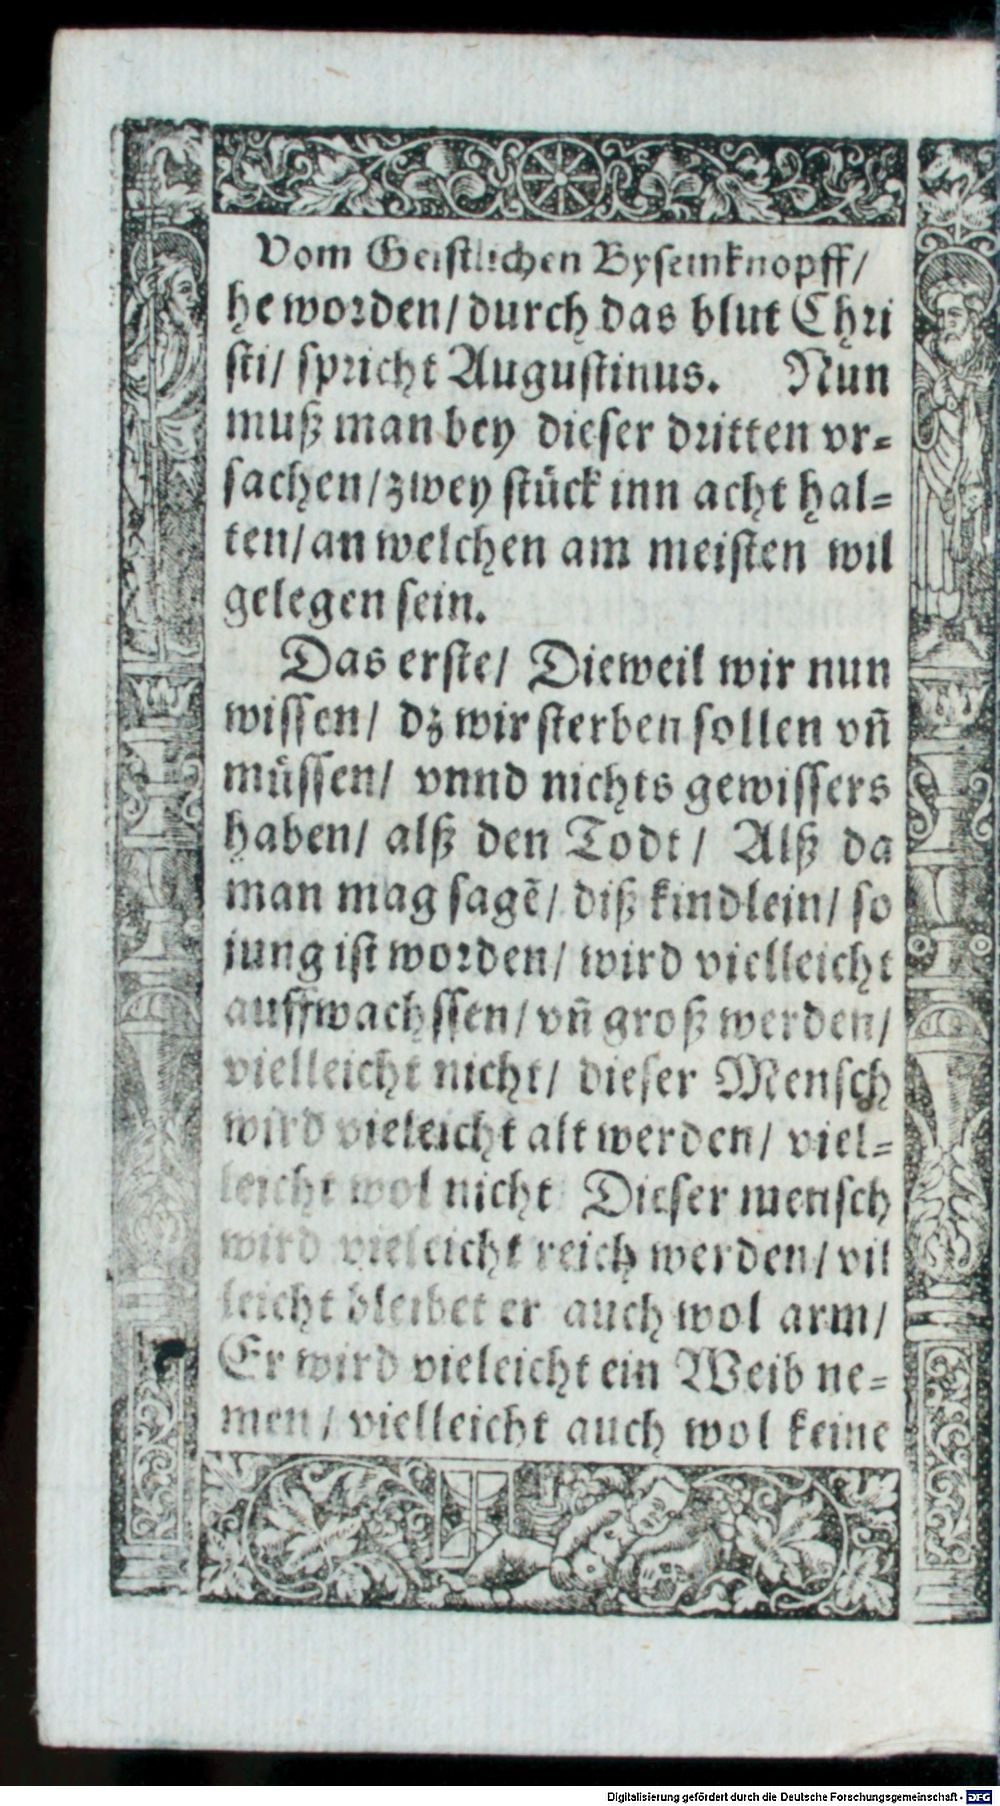 Vom Geistlichen Bysemknopff/
he worden/ durch das blut Chri
sti/ spricht Augustinus. Nun
muß man bey dieser dritten vr=
sachen/ zwey stück inn acht hal=
ten/ an welchen am meisten wil
gelegen sein.
Das erste/ Dieweil wir nun
wissen/ dz wir sterben sollen vñ
müssen/ vnnd nichts gewissers
haben/ alß den Todt/ Alß da
man mag sagẽ/ diß kindlein/ so
jung ist worden/ wird vielleicht
auffwachssen/ vñ groß werden/
vielleicht nicht/ dieser Mensch
wird vieleicht alt werden/ viel=
leicht wol nicht Dieser mensch
wird vieleicht reich werden/ vil
leicht bleibet er auch wol arm/
Er wird vieleicht ein Weib ne=
men/ vielleicht auch wol keine
Digitalisierung gefördert durch die Deutsche Forschungsgemeinschaft - DFG